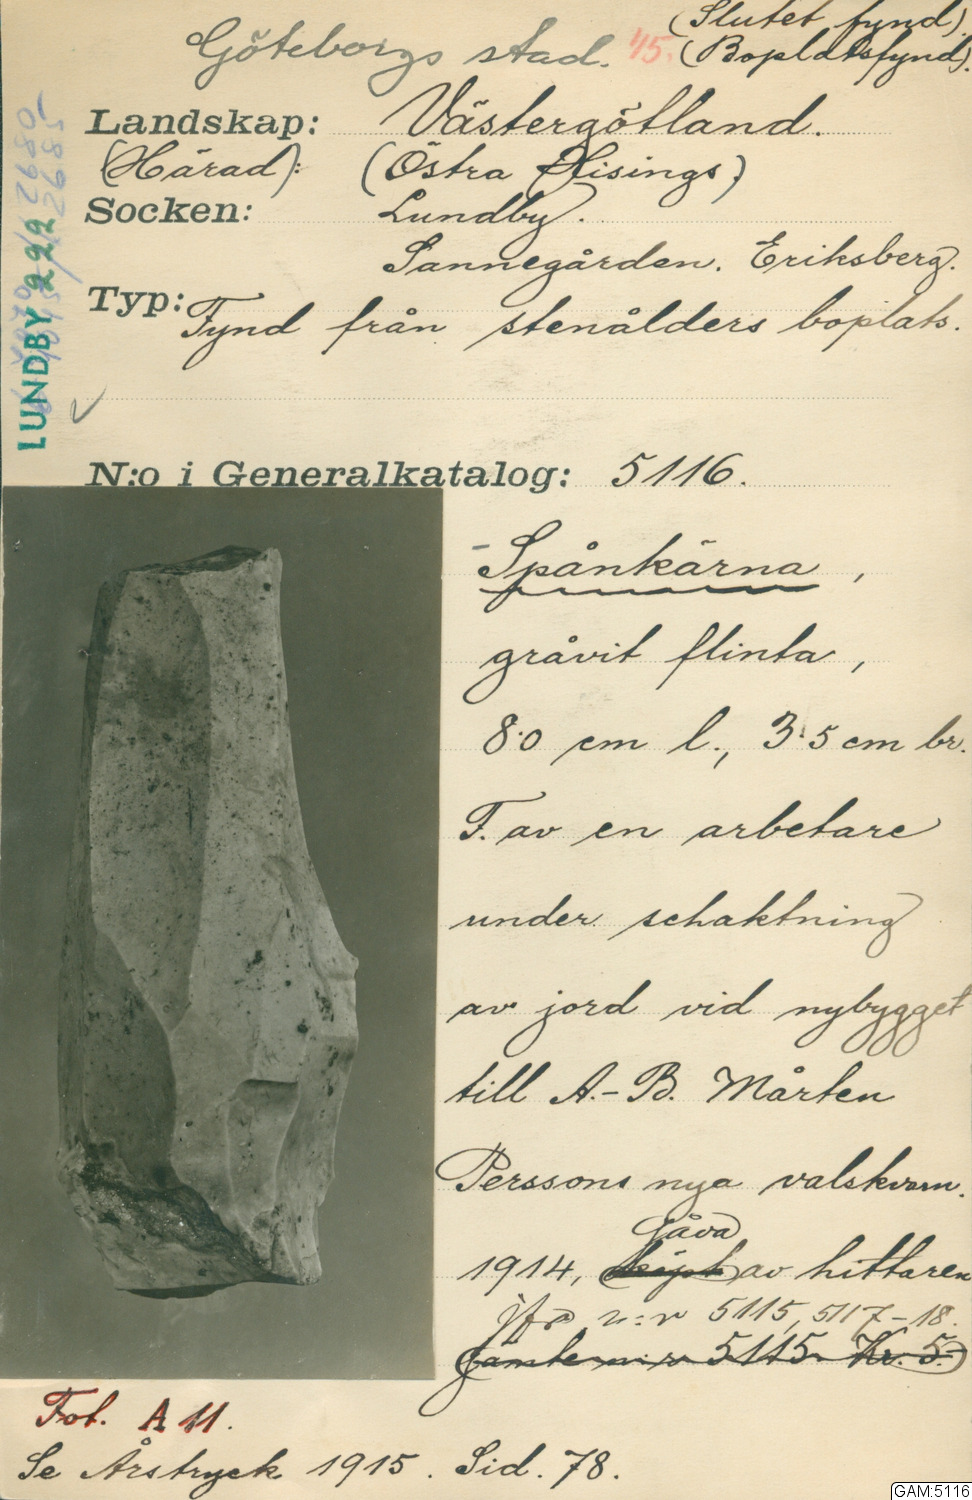 (Slutet fynd)
Göteborgs stad. 45. (Boplatsfynd).
Landskap: Västergötland.
(Härad): (Östra Hisings)
Socken: Lundby.
Sannegården. Eriksberg.
Typ: Fynd från stenålders boplats.
LUNDBY 222
N:o i Generalkatalog: 5116.
Spånkärna,
gråvit flinta,
8.0 cm l., 3.5 cm br.
F. av en arbetare
under schaktning
av jord vid nybygget
till A.-B. Mårten
Perssons nya valskvarn.
Gåva
1914, köpt av hittaren
jfr n:r 5115, 5117-18.
jämte n:r 5115. Kr. 5.-
Fot. A 11.
Se Årstryck 1915. Sid. 78.
GAM:5116